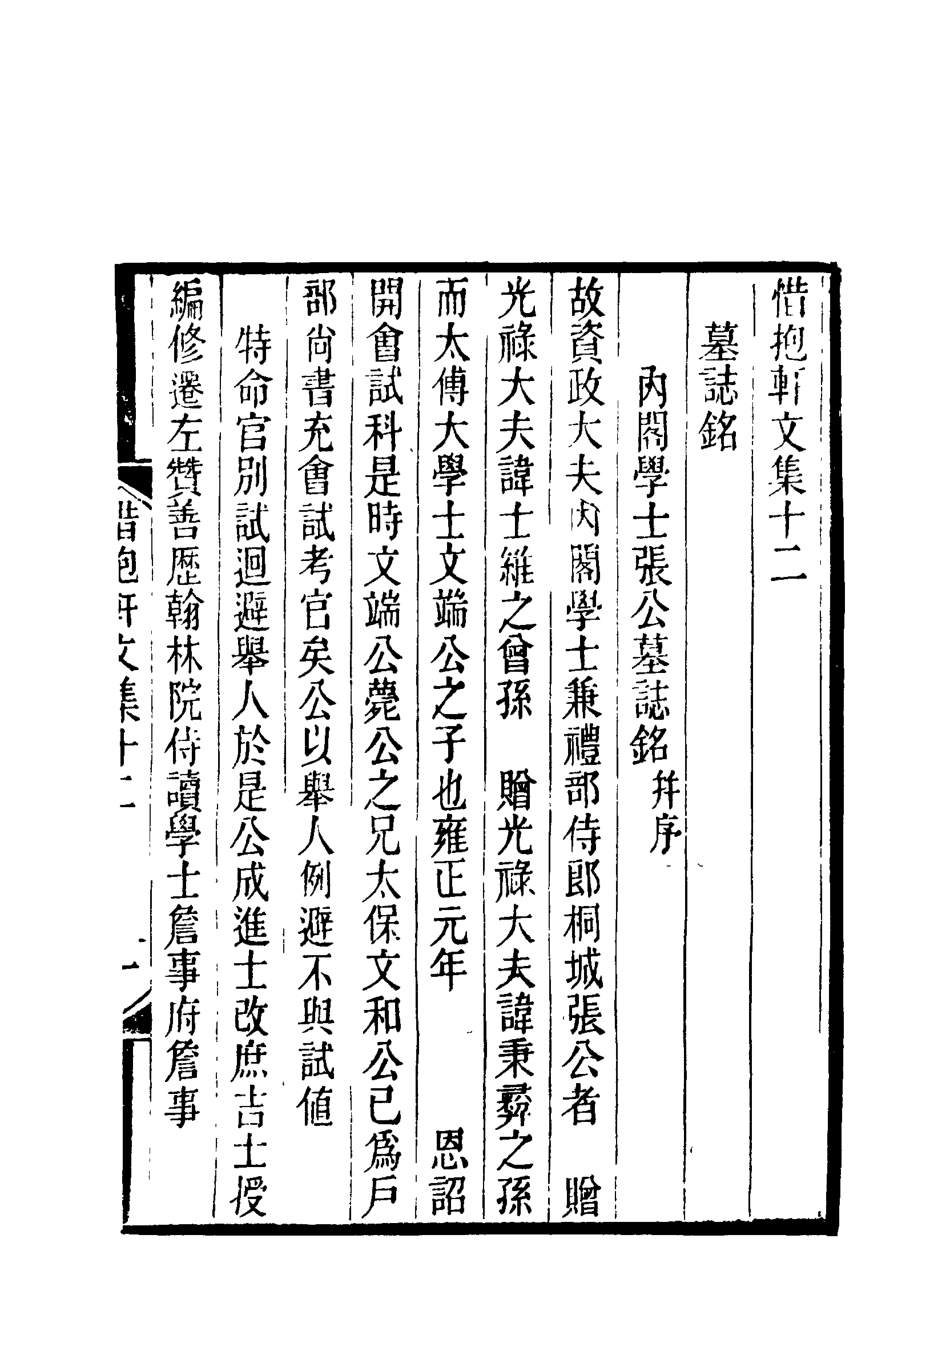 惜抱軒文集十二
墓誌銘
內閣學士張公墓誌銘 并序
故資政大夫內閣學士兼禮部侍郎桐城張公者 贈
光祿大夫諱士維之曾孫 贈光祿大夫諱秉彛之孫
而太傅大學士文端公之子也雍正元年 恩詔
開會試科是時文端公薨公之兄太保文和公已爲戶
部尙書充會試考官矣公以舉人例避不與試値
特命官別試迴避舉人於是公成進士改庶吉士授
編修遷左贊善歷翰林院侍讀學士詹事府詹事
惜抱軒文集十二 一